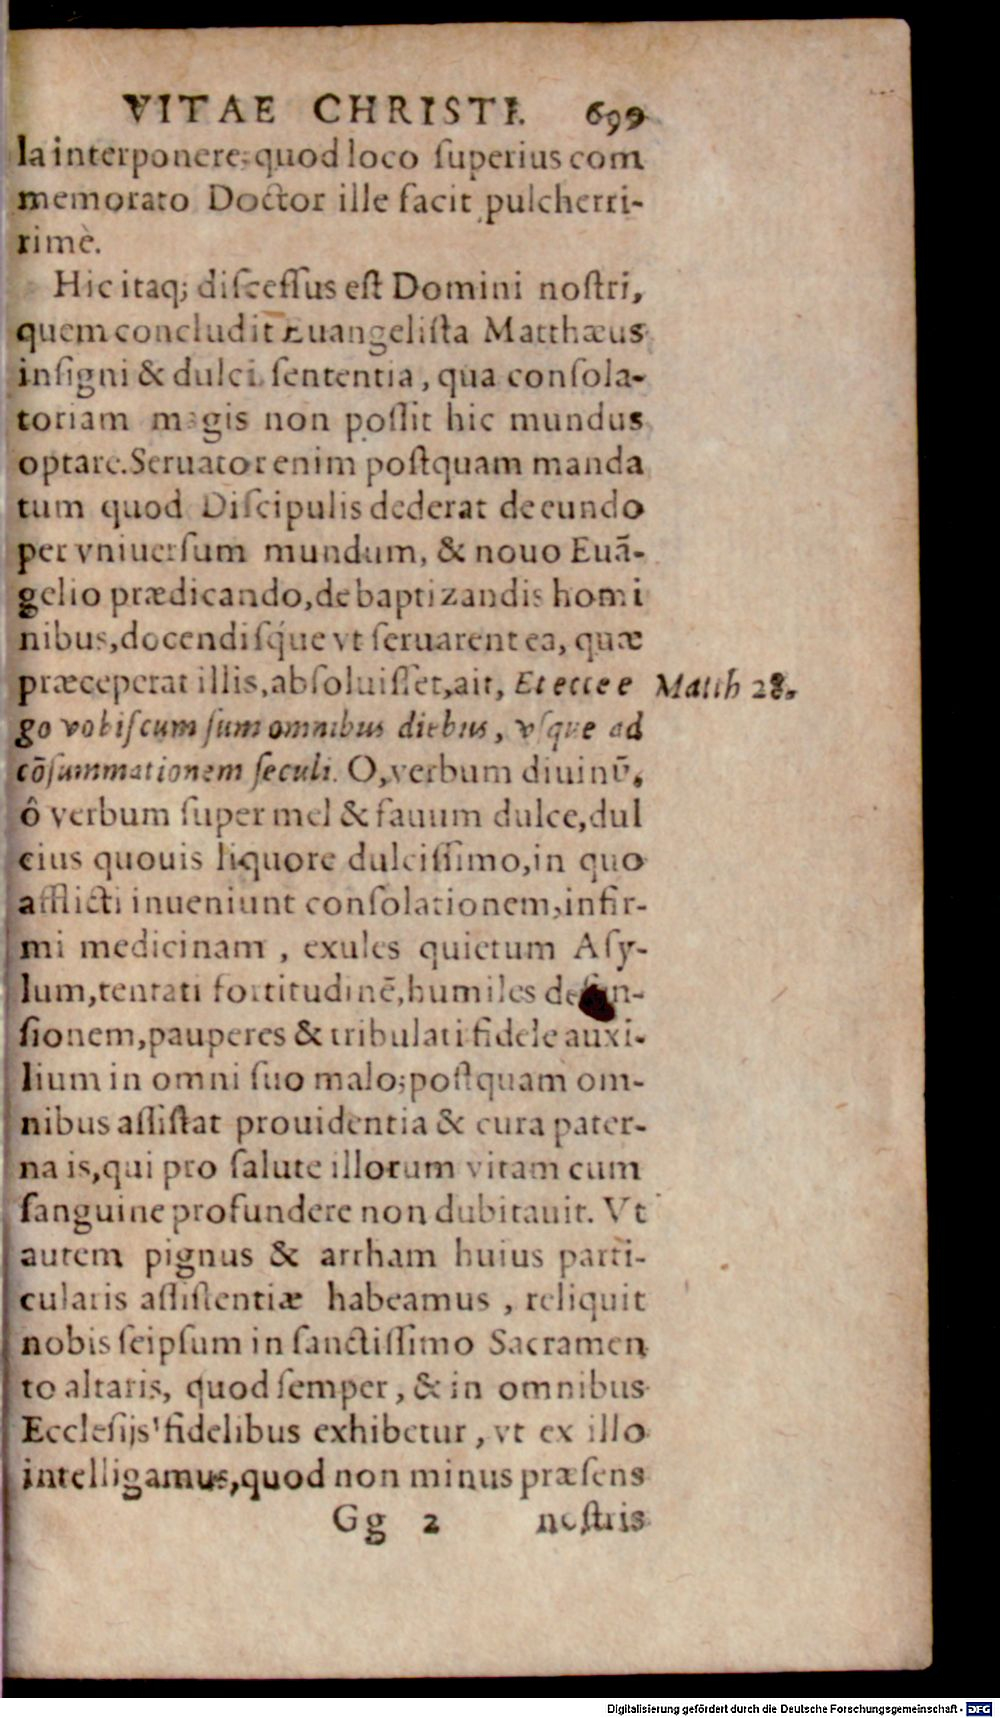 VITAE CHRISTI. 699
la interponere, quod loco ſuperius com
memorato Doctor ille facit pulcherri-
rimè.
Hic itaq; diſceſſus eſt Domini noſtri,
quem concludit Euangeliſta Matthæus
inſigni & dulci ſententia, qua conſola-
toriam magis non poſſit hic mundus
optare. Seruator enim poſtquam manda
tum quod Diſcipulis dederat de eundo
per vniuerſum mundum, & nouo Euã-
gelio prædicando, de baptizandis homi
nibus, docendiſq́ue vt ſeruarent ea, quæ
præceperat illis, abſoluiſſet, ait, Et ecce e
Matth 28.
go vobiſcum ſum omnibus diebus, vſque ad
cõſummationem ſeculi. O, verbum diuinũ,
ô verbum ſuper mel & fauum dulce, dul
cius quouis liquore dulciſſimo, in quo
afflicti inueniunt conſolationem, infir-
mi medicinam, exules quietum Aſy-
lum, tentati fortitudinẽ, humiles defen-
ſionem, pauperes & tribulati fidele auxi-
lium in omni ſuo malo; poſtquam om-
nibus aſſiſtat prouidentia & cura pater-
na is, qui pro ſalute illorum vitam cum
ſanguine profundere non dubitauit. Vt
autem pignus & arrham huius parti-
cularis aſſiſtentiæ habeamus, reliquit
nobis ſeipſum in ſanctiſſimo Sacramen
to altaris, quod ſemper, & in omnibus
Eccleſijs fidelibus exhibetur, vt ex illo
intelligamus, quod non minus præſens
Gg 2 noſtris
Digitalisierung gefördert durch die Deutsche Forschungsgemeinschaft - DFG